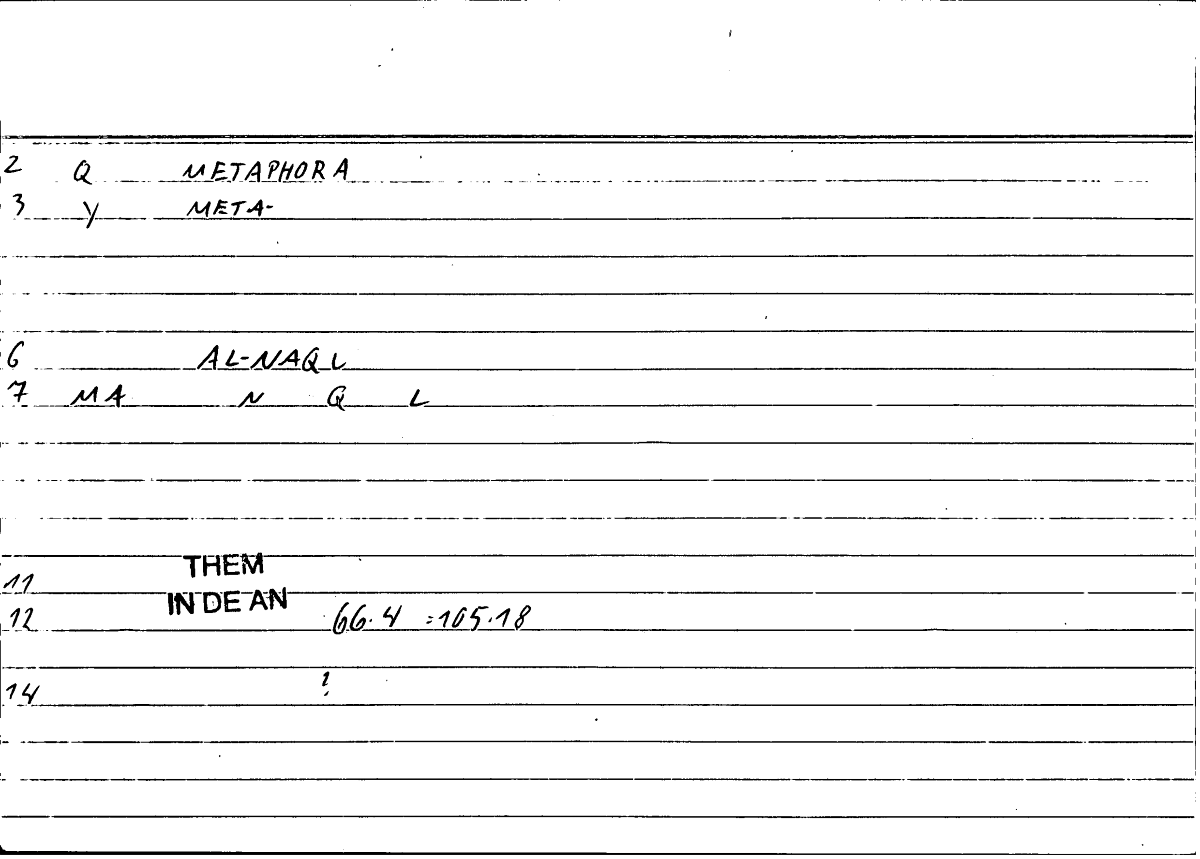 2 Q METAPHORA
3 Y META-
6 AL-NAQL
7 MA N Q L
THEM
11
IN DE AN
12 66.4 =105.18
14 !